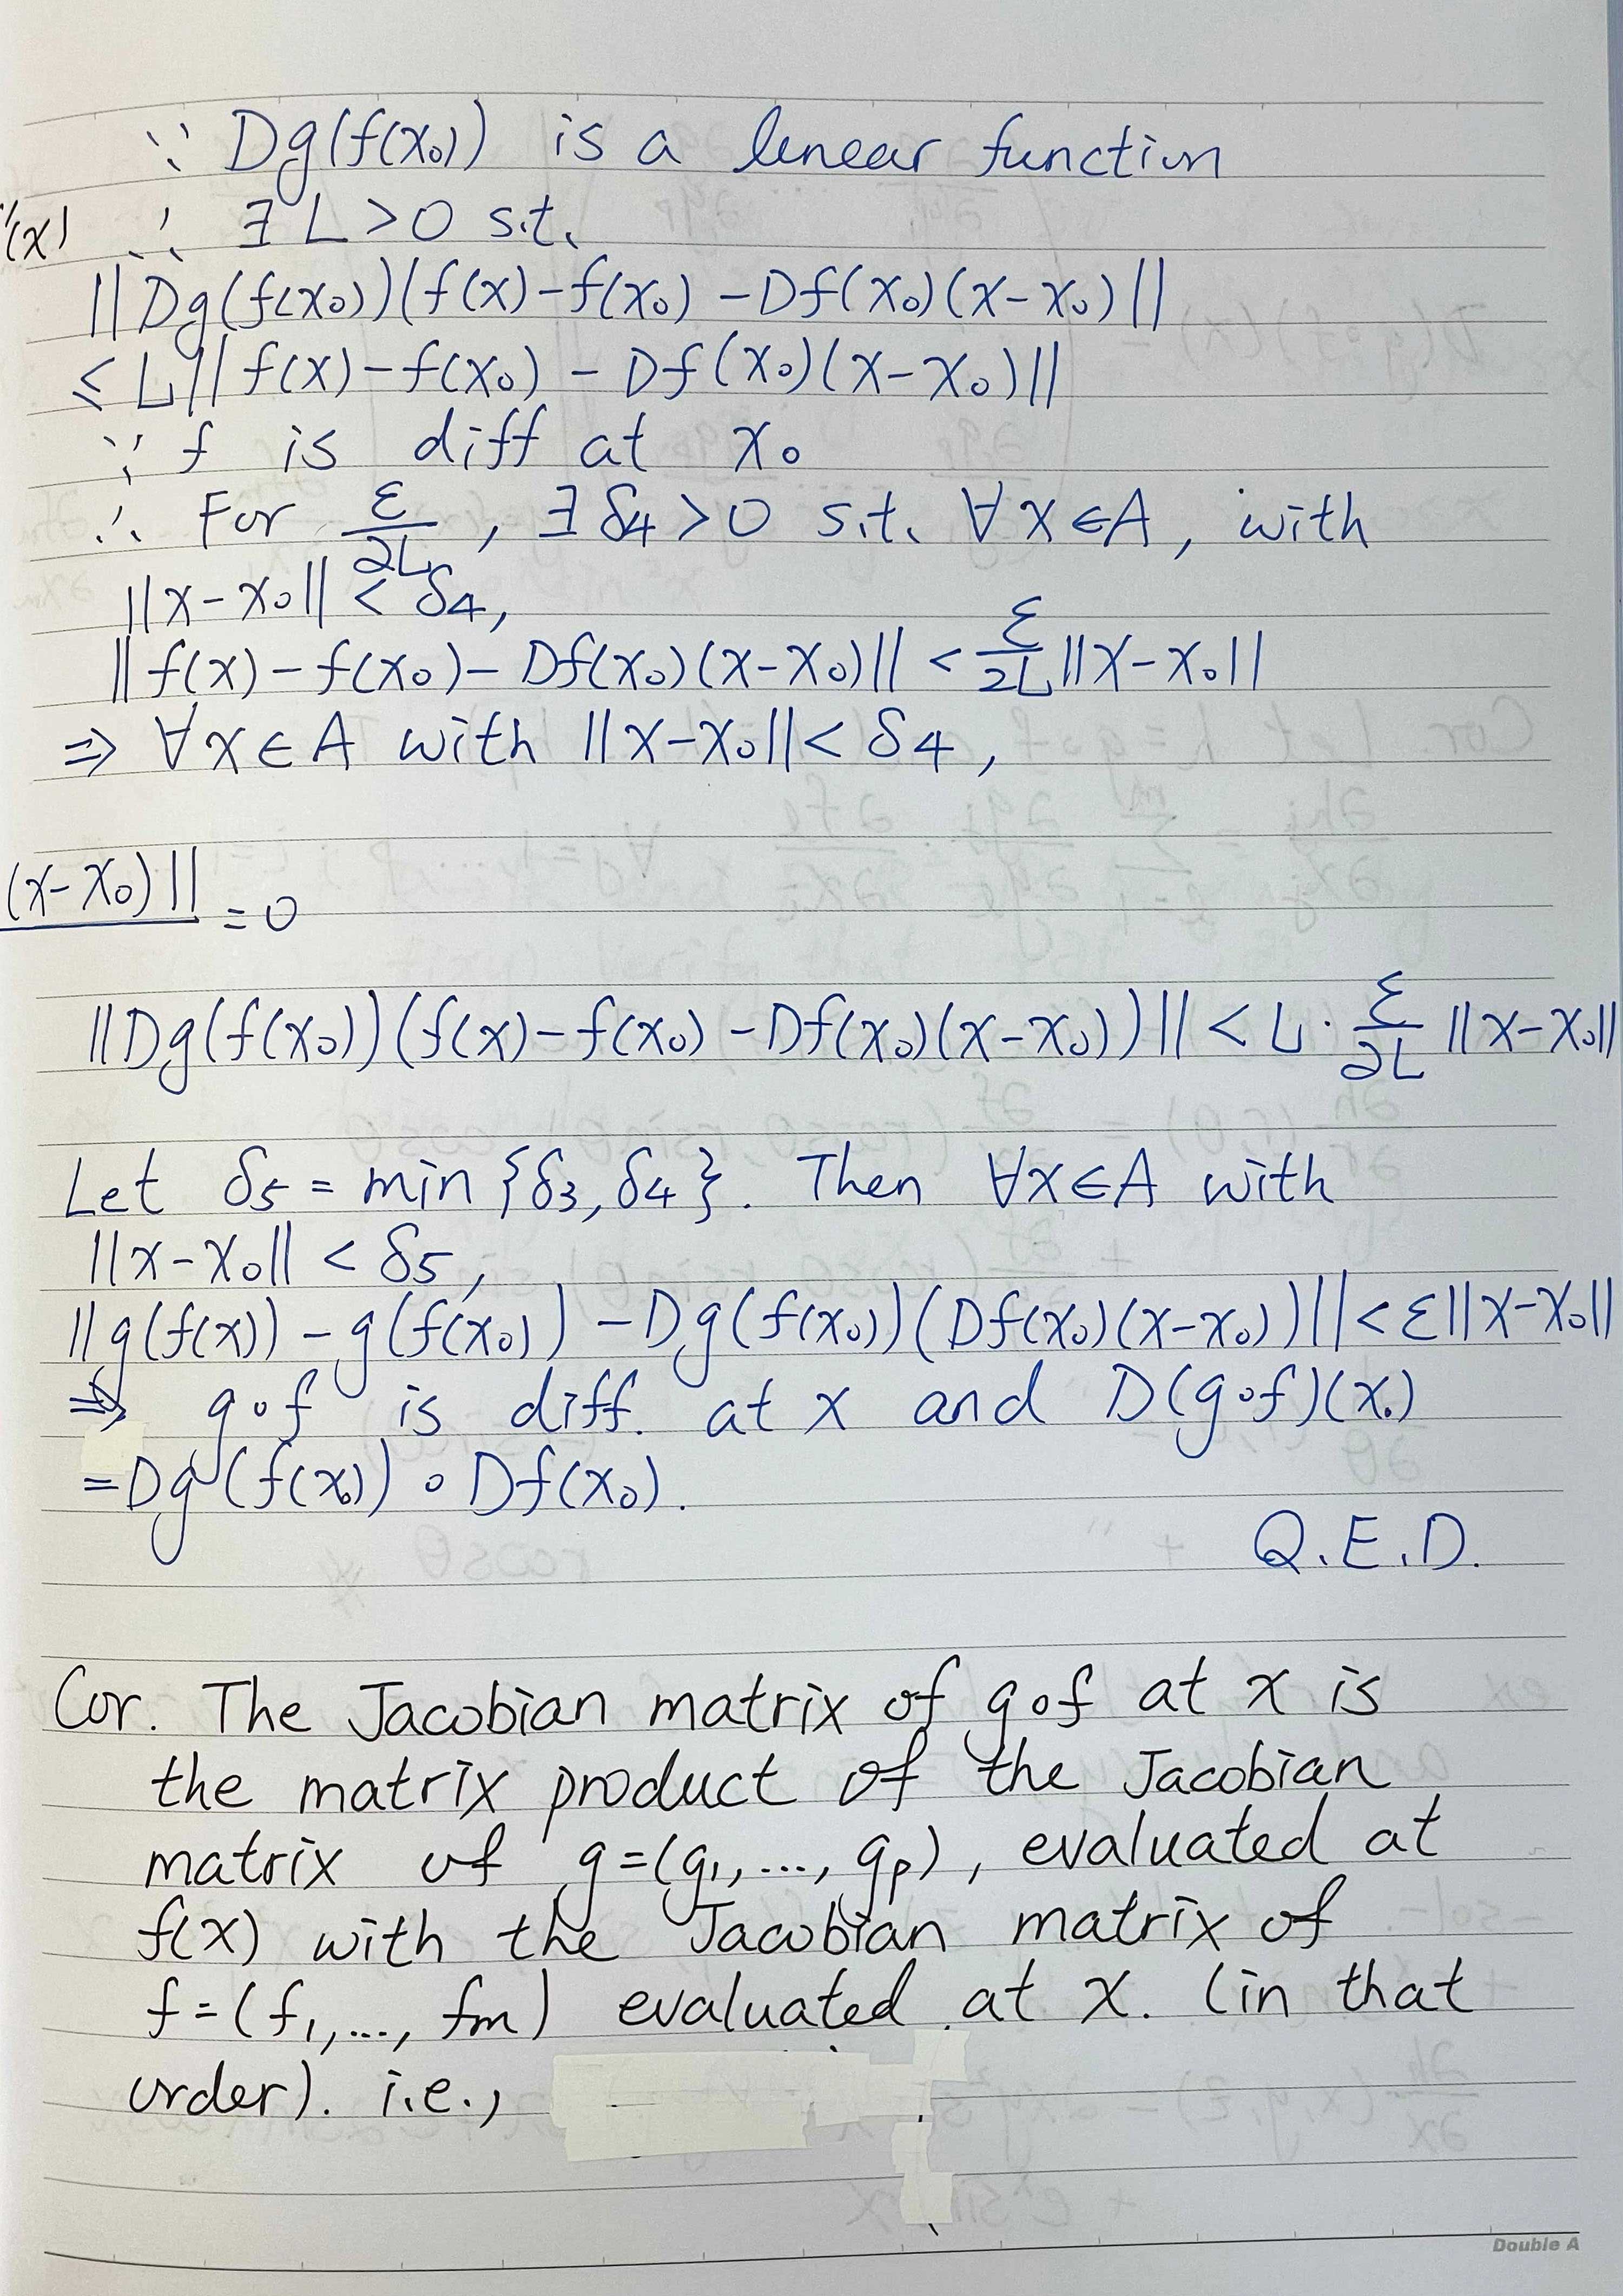 ∵ Dg(f(x₀)) is a linear function
'(x) ∴ ∃ L > 0 s.t.
||Dg(f(x₀))(f(x)-f(x₀) -Df(x₀)(x-x₀)||
≤ L||f(x)-f(x₀) - Df(x₀)(x-x₀)||
∵ f is diff at x₀
∴ For ε/2L, ∃ δ4 > 0 s.t. ∀x∈A, with
||x-x₀|| < δ4,
||f(x)-f(x₀)-Df(x₀)(x-x₀)|| < ε/2L ||x-x₀||
⇒ ∀x∈A with ||x-x₀|| < δ4,
(x-x₀)|| = 0
||Dg(f(x₀))(f(x)-f(x₀) -Df(x₀)(x-x₀))|| < L · ε/2L ||x-x₀||
Let δ5 = min {δ3, δ4}. Then ∀x∈A with
||x-x₀|| < δ5,
||g(f(x)) - g(f(x₀)) - Dg(f(x₀))(Df(x₀)(x-x₀))|| < ε||x-x₀||
⇒ g∘f is diff. at x and D(g∘f)(x₀)
=Dg(f(x₀)) ∘ Df(x₀).
Q.E.D.
Cor. The Jacobian matrix of g∘f at x is
the matrix product of the Jacobian
matrix of g=(g₁,..., gₚ), evaluated at
f(x) with the Jacobian matrix of
f=(f₁,..., fm) evaluated at x. (in that
order). i.e.,
Double A